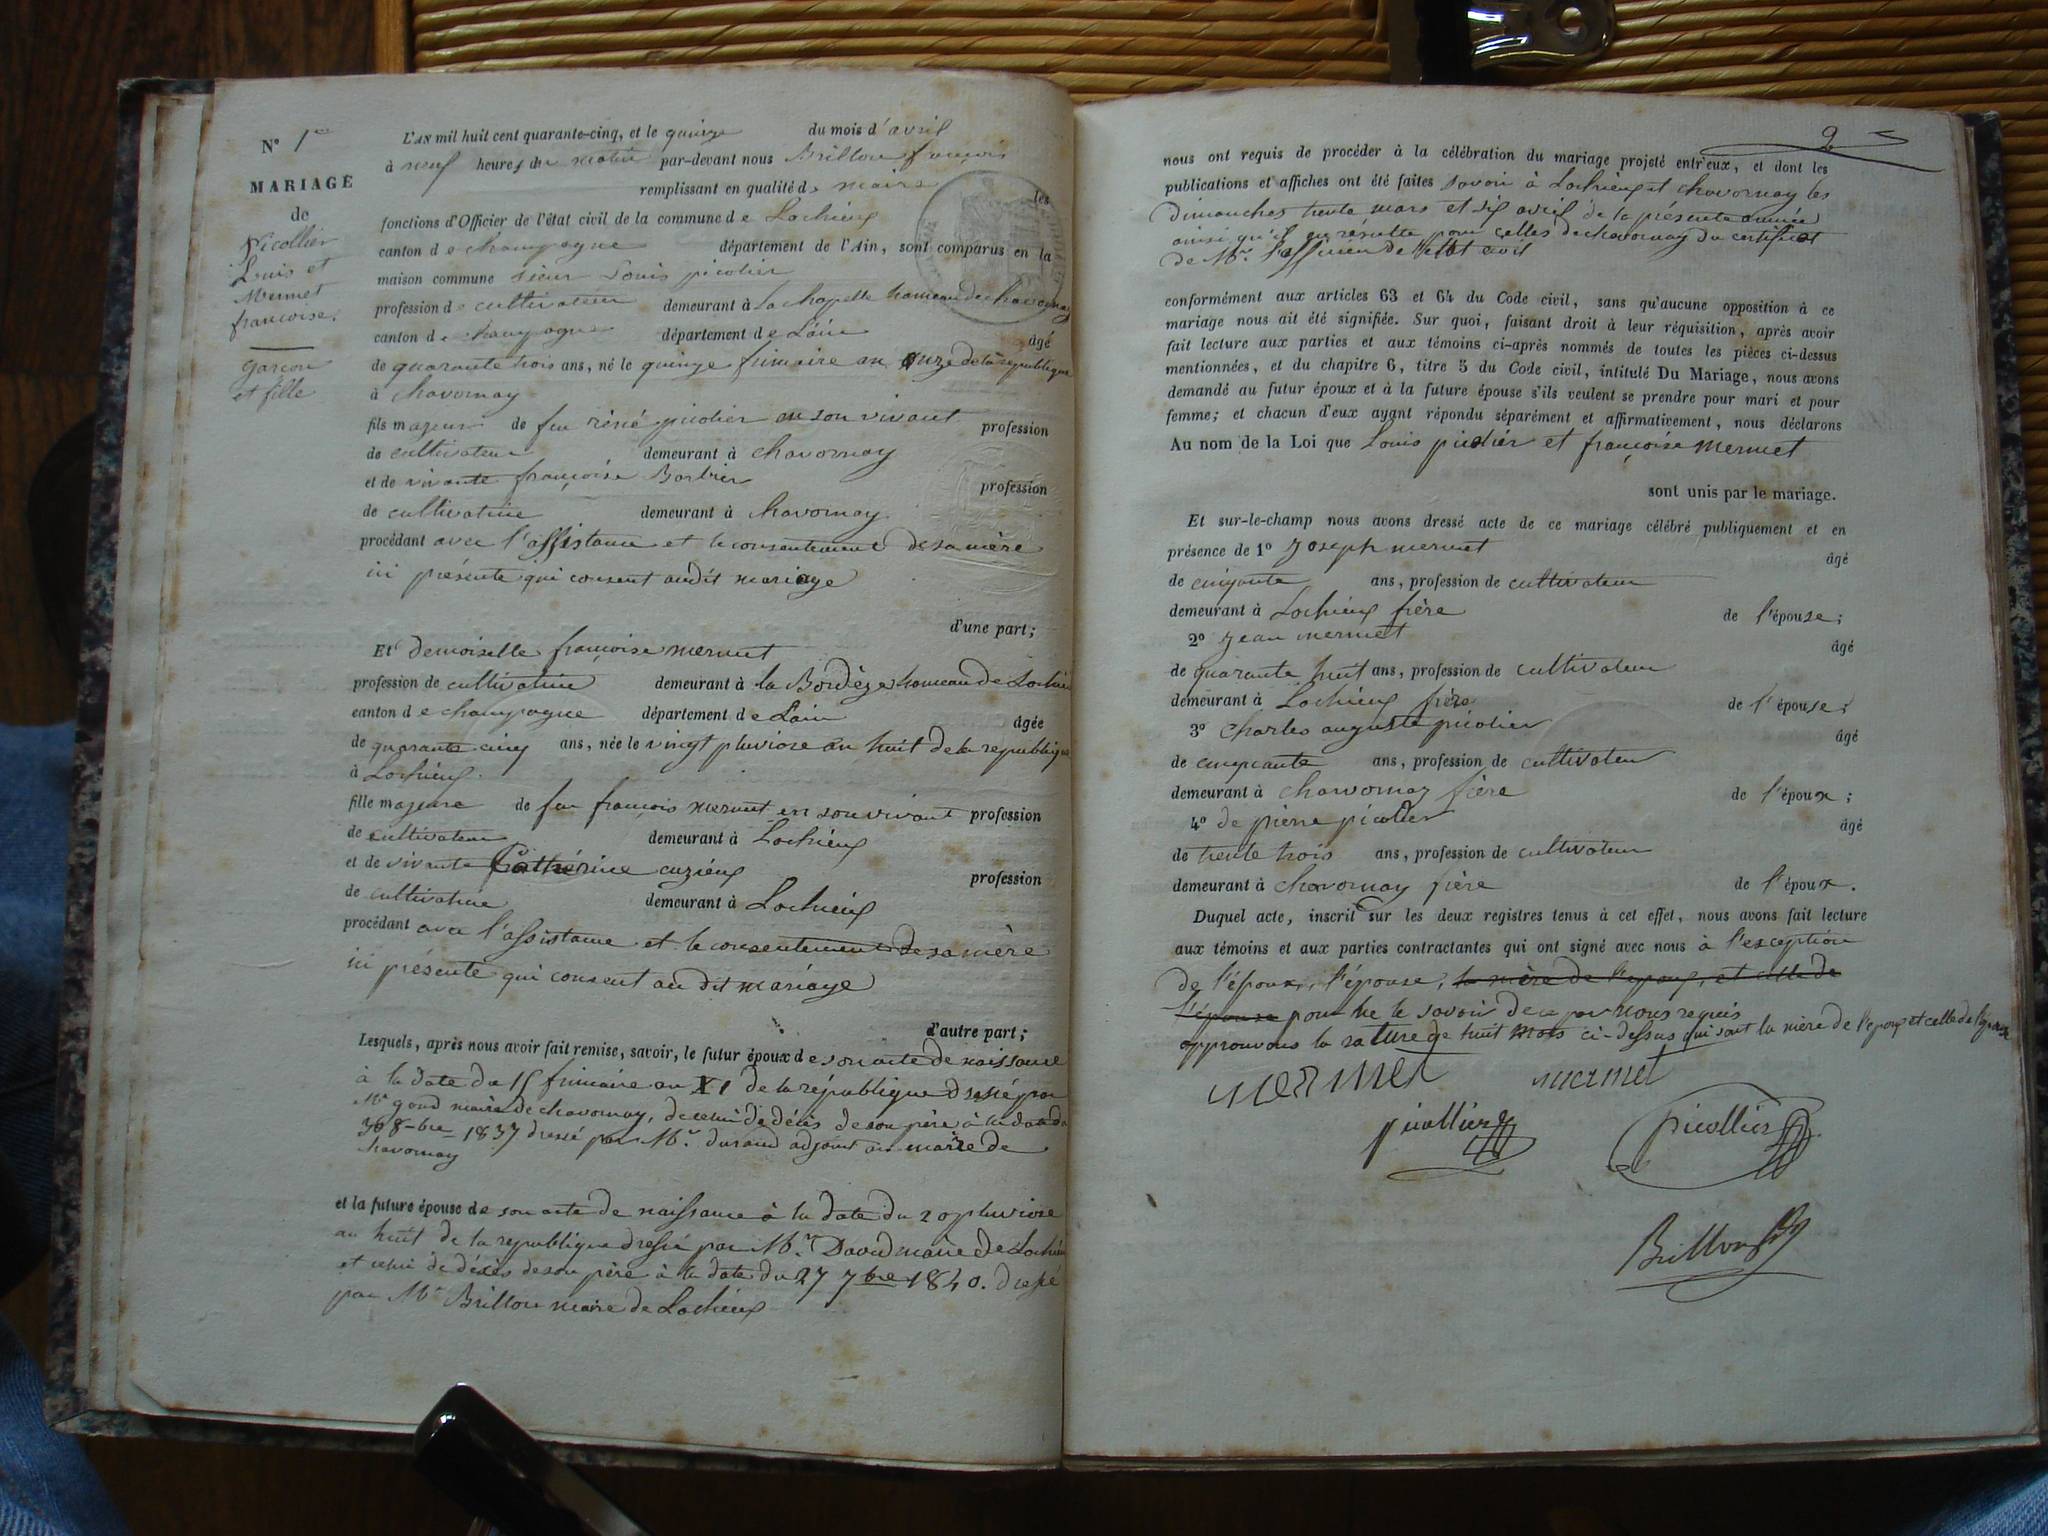 N° 1er
MARIAGE
de
Picollier
Louis et
Mermet
françoise.
garçon
et fille
L'AN mil huit cent quarante-cinq, et le quinze du mois d'avril
à neuf heures du matin par-devant nous Brillon françois
remplissant en qualité de maire les
fonctions d'Officier de l'état civil de la commune de Lochieux
canton de champagne département de l'Ain, sont comparus en la
maison commune sieur Louis picolier
profession de cultivateur demeurant à La chapelle hameau de chavornay
canton de champagne département de L'ain âgé
de quarante trois ans, né le quinze frimaire an onze de la republique
à chavornay
fils majeur de feu réné picolier en son vivant profession
de cultivateur demeurant à chavornay
et de vivante françoise Barbier profession
de cultivatrice demeurant à chavornay
procédant avec l'assistance et le consentement de sa mère
ici présente qui consent audit mariage
d'une part;
Et demoiselle françoise mermet
profession de cultivatrice demeurant à la Bordèze hameau de Lochieu
canton de champagne département de Lain âgée
de quarante cinq ans, née le vingt pluviose an huit de la republique
à Lochieux.
fille majeure de feu françois mermet en son vivant profession
de cultivateur demeurant à Lochieux
et de vivante Cathérine cuzieux profession
de cultivatrice demeurant à Lochieux
procédant avec l'assistance et le consentement de sa mère
ici présente qui consent au dit mariage
d'autre part;
Lesquels, après nous avoir fait remise, savoir, le futur époux de son acte de naissance
à la date du 15 frimaire an XI de la république dressé par
Mr goud maire de chavornay, de celui de décès de son père à la date du
30 8-bre 1837 dressé par Mr. durand adjoint au maire de
chavornay
et la future épouse de son acte de naissance à la date du 20 pluviose
an huit de la republique dressé par Mr. David maire de Lochieu
et celui de décès de son père à la date du 27 7bre 1840. dressé
par Mr Brillon maire de Lochieux
2
nous ont requis de procéder à la célébration du mariage projeté entr'eux, et dont les
publications et affiches ont été faites savoir à Lochieux et chavornay les
dimanches trente mars et six avril de la présente année
ainsi qu'il en résulte pour celles de chavornay du certificat
de Mr. l'officier de l'état civil
conformément aux articles 63 et 64 du Code civil, sans qu'aucune opposition à ce
mariage nous ait été signifiée. Sur quoi, faisant droit à leur réquisition, après avoir
fait lecture aux parties et aux témoins ci-après nommés de toutes les pièces ci-dessus
mentionnées, et du chapitre 6, titre 5 du Code civil, intitulé Du Mariage, nous avons
demandé au futur époux et à la future épouse s'ils veulent se prendre pour mari et pour
femme; et chacun d'eux ayant répondu séparément et affirmativement, nous déclarons
Au nom de la Loi que Louis picolier et françoise Mermet
sont unis par le mariage.
Et sur-le-champ nous avons dressé acte de ce mariage célébré publiquement et en
présence de 1° Joseph mermet âgé
de cinquante ans, profession de cultivateur
demeurant à Lochieux frère de l'épouse;
2° Jean mermet âgé
de quarante huit ans, profession de cultivateur
demeurant à Lochieux frère de l'épouse;
3° Charles auguste picolier âgé
de cinquante ans, profession de cultivateur
demeurant à chavornay frère de l'époux;
4° de pierre picolier âgé
de trente trois ans, profession de cultivateur
demeurant à chavornay frère de l'époux.
Duquel acte, inscrit sur les deux registres tenus à cet effet, nous avons fait lecture
aux témoins et aux parties contractantes qui ont signé avec nous à l'exception
de l'époux, l'épouse, la mère de l'epoux, et celle de
l'épouse pour ne le savoir de ce par nous requis
approuvons la rature de huit mots ci-dessus qui sont la mère de l'epoux et celle de l'épouse
mermet mermet
picollier picollier
Brillon